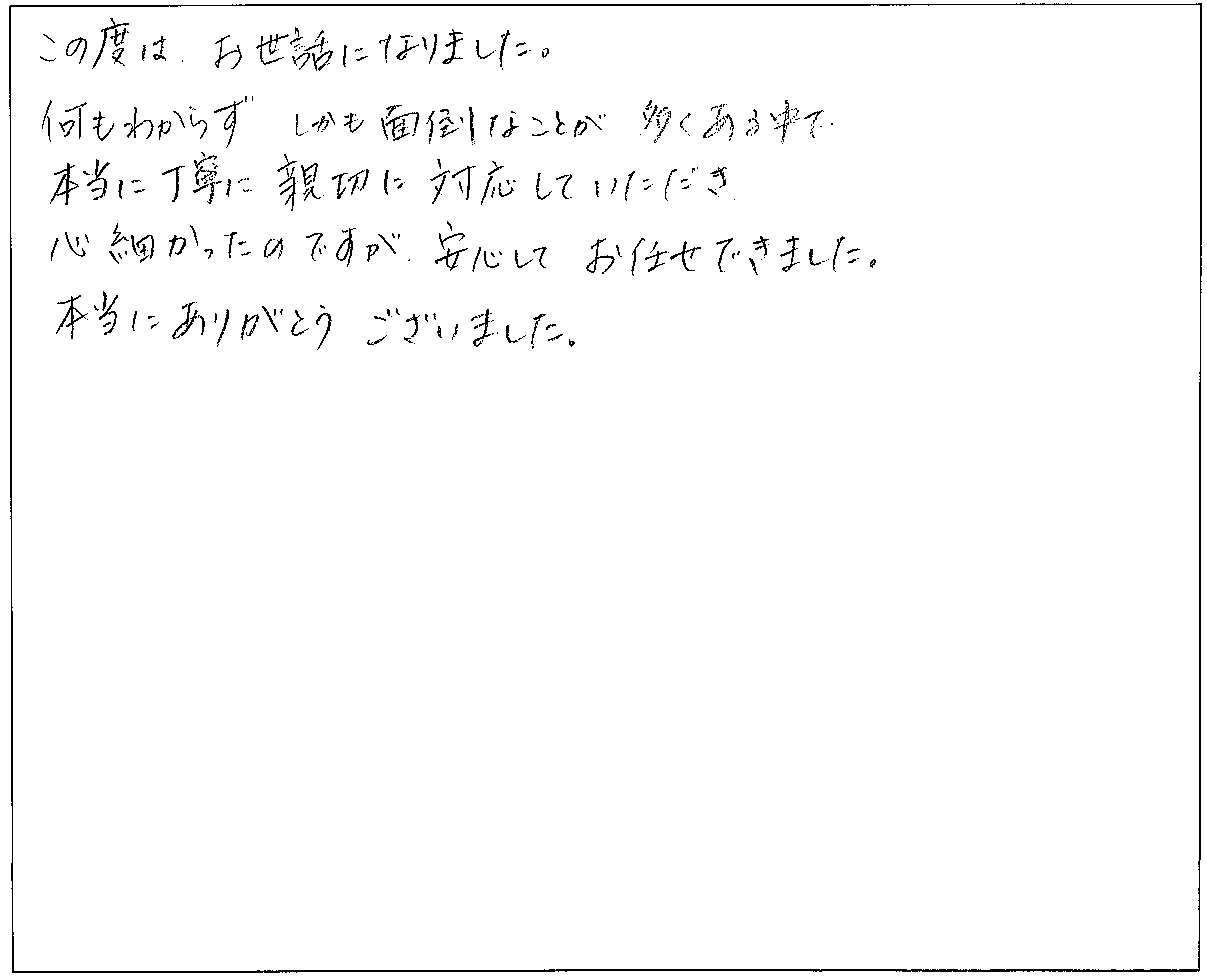 この度は、お世話になりました。
何もわからず しかも面倒なことが 多くある中で
本当に丁寧に 親切に 対応していただき
心細かったのですが、安心して お任せできました。
本当にありがとう ございました。